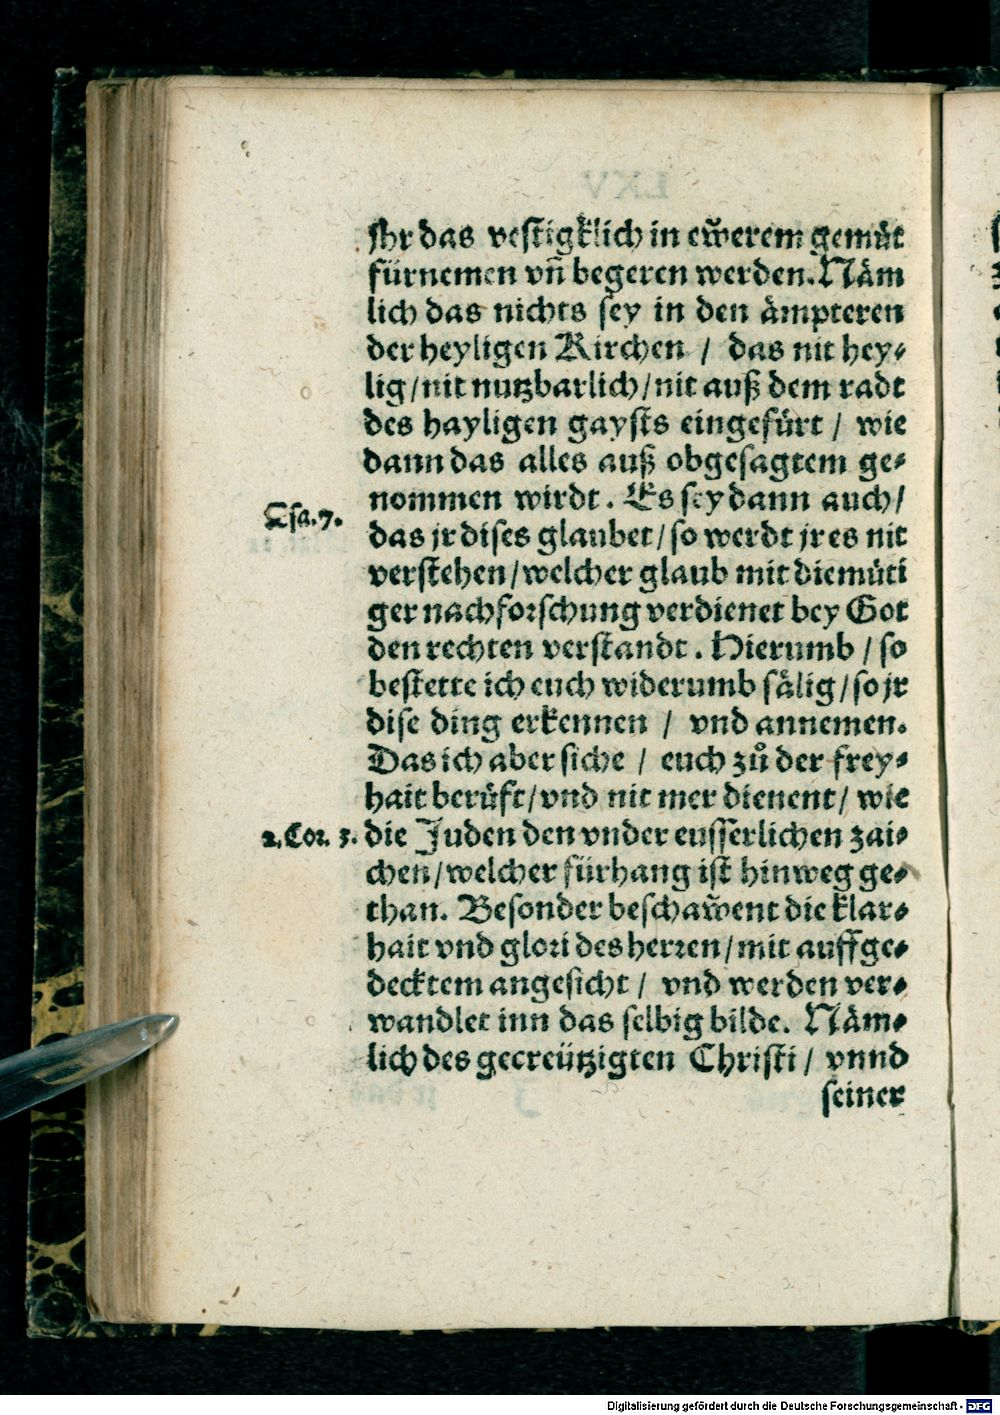 jhr das vestigklich in ew̃erem gemuͤt
fürnemen vñ begeren werden. Naͤm
lich das nichts sey in den aͤmpteren
der heyligen Kirchen / das nit hey⸗
lig / nit nutzbarlich / nit auß dem radt
des hayligen gaysts eingefuͤrt / wie
dann das alles auß obgesagtem ge⸗
nommen wirdt. Es sey dann auch /
Esa. 7.
das jr dises glaubet / so werdt jr es nit
verstehen / welcher glaub mit diemuͤti
ger nachforschung verdienet bey Got
den rechten verstandt. Hierumb / so
bestette ich euch widerumb saͤlig / so jr
dise ding erkennen / vnd annemen.
Das ich aber siche / euch zuͦ der frey⸗
hait beruͤft / vnd nit mer dienent / wie
2. Cor. 3.
die Juden den vnder eusserlichen zai⸗
chen / welcher fürhang ist hinweg ge⸗
than. Besonder beschaw̃ent die klar⸗
hait vnd glori des herren / mit auffge⸗
decktem angesicht / vnd werden ver⸗
wandlet inn das selbig bilde. Naͤm⸗
lich des gecreützigten Christi / vnnd
seiner
Digitalisierung gefördert durch die Deutsche Forschungsgemeinschaft - DFG